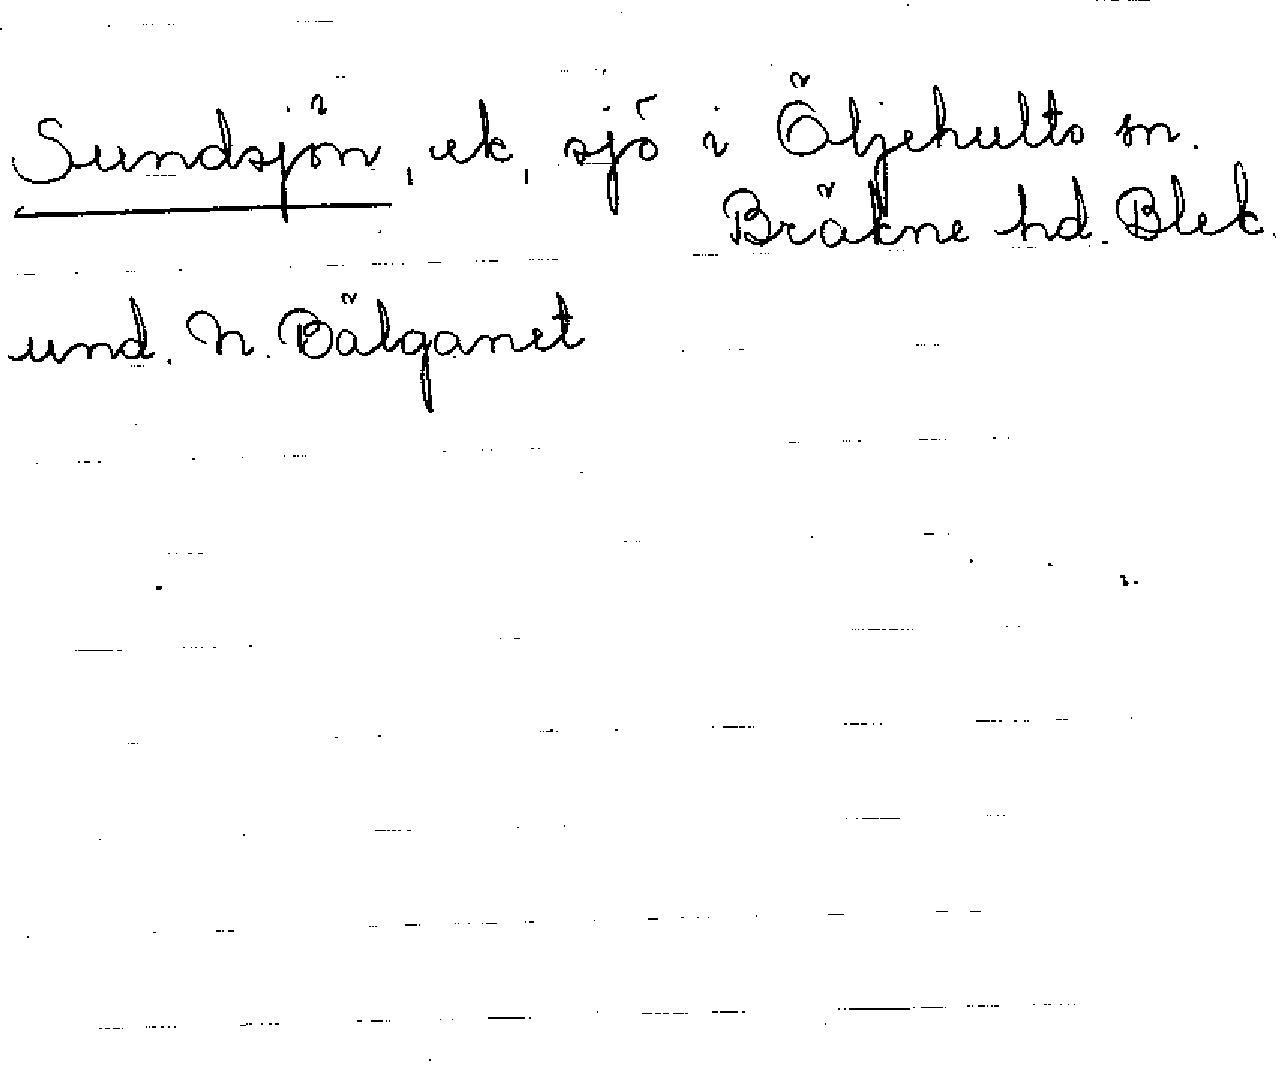 Sundsjön, ek, sjö i Öljehults sn.
Bräkne hd. Blek.
und. N. Bälganet